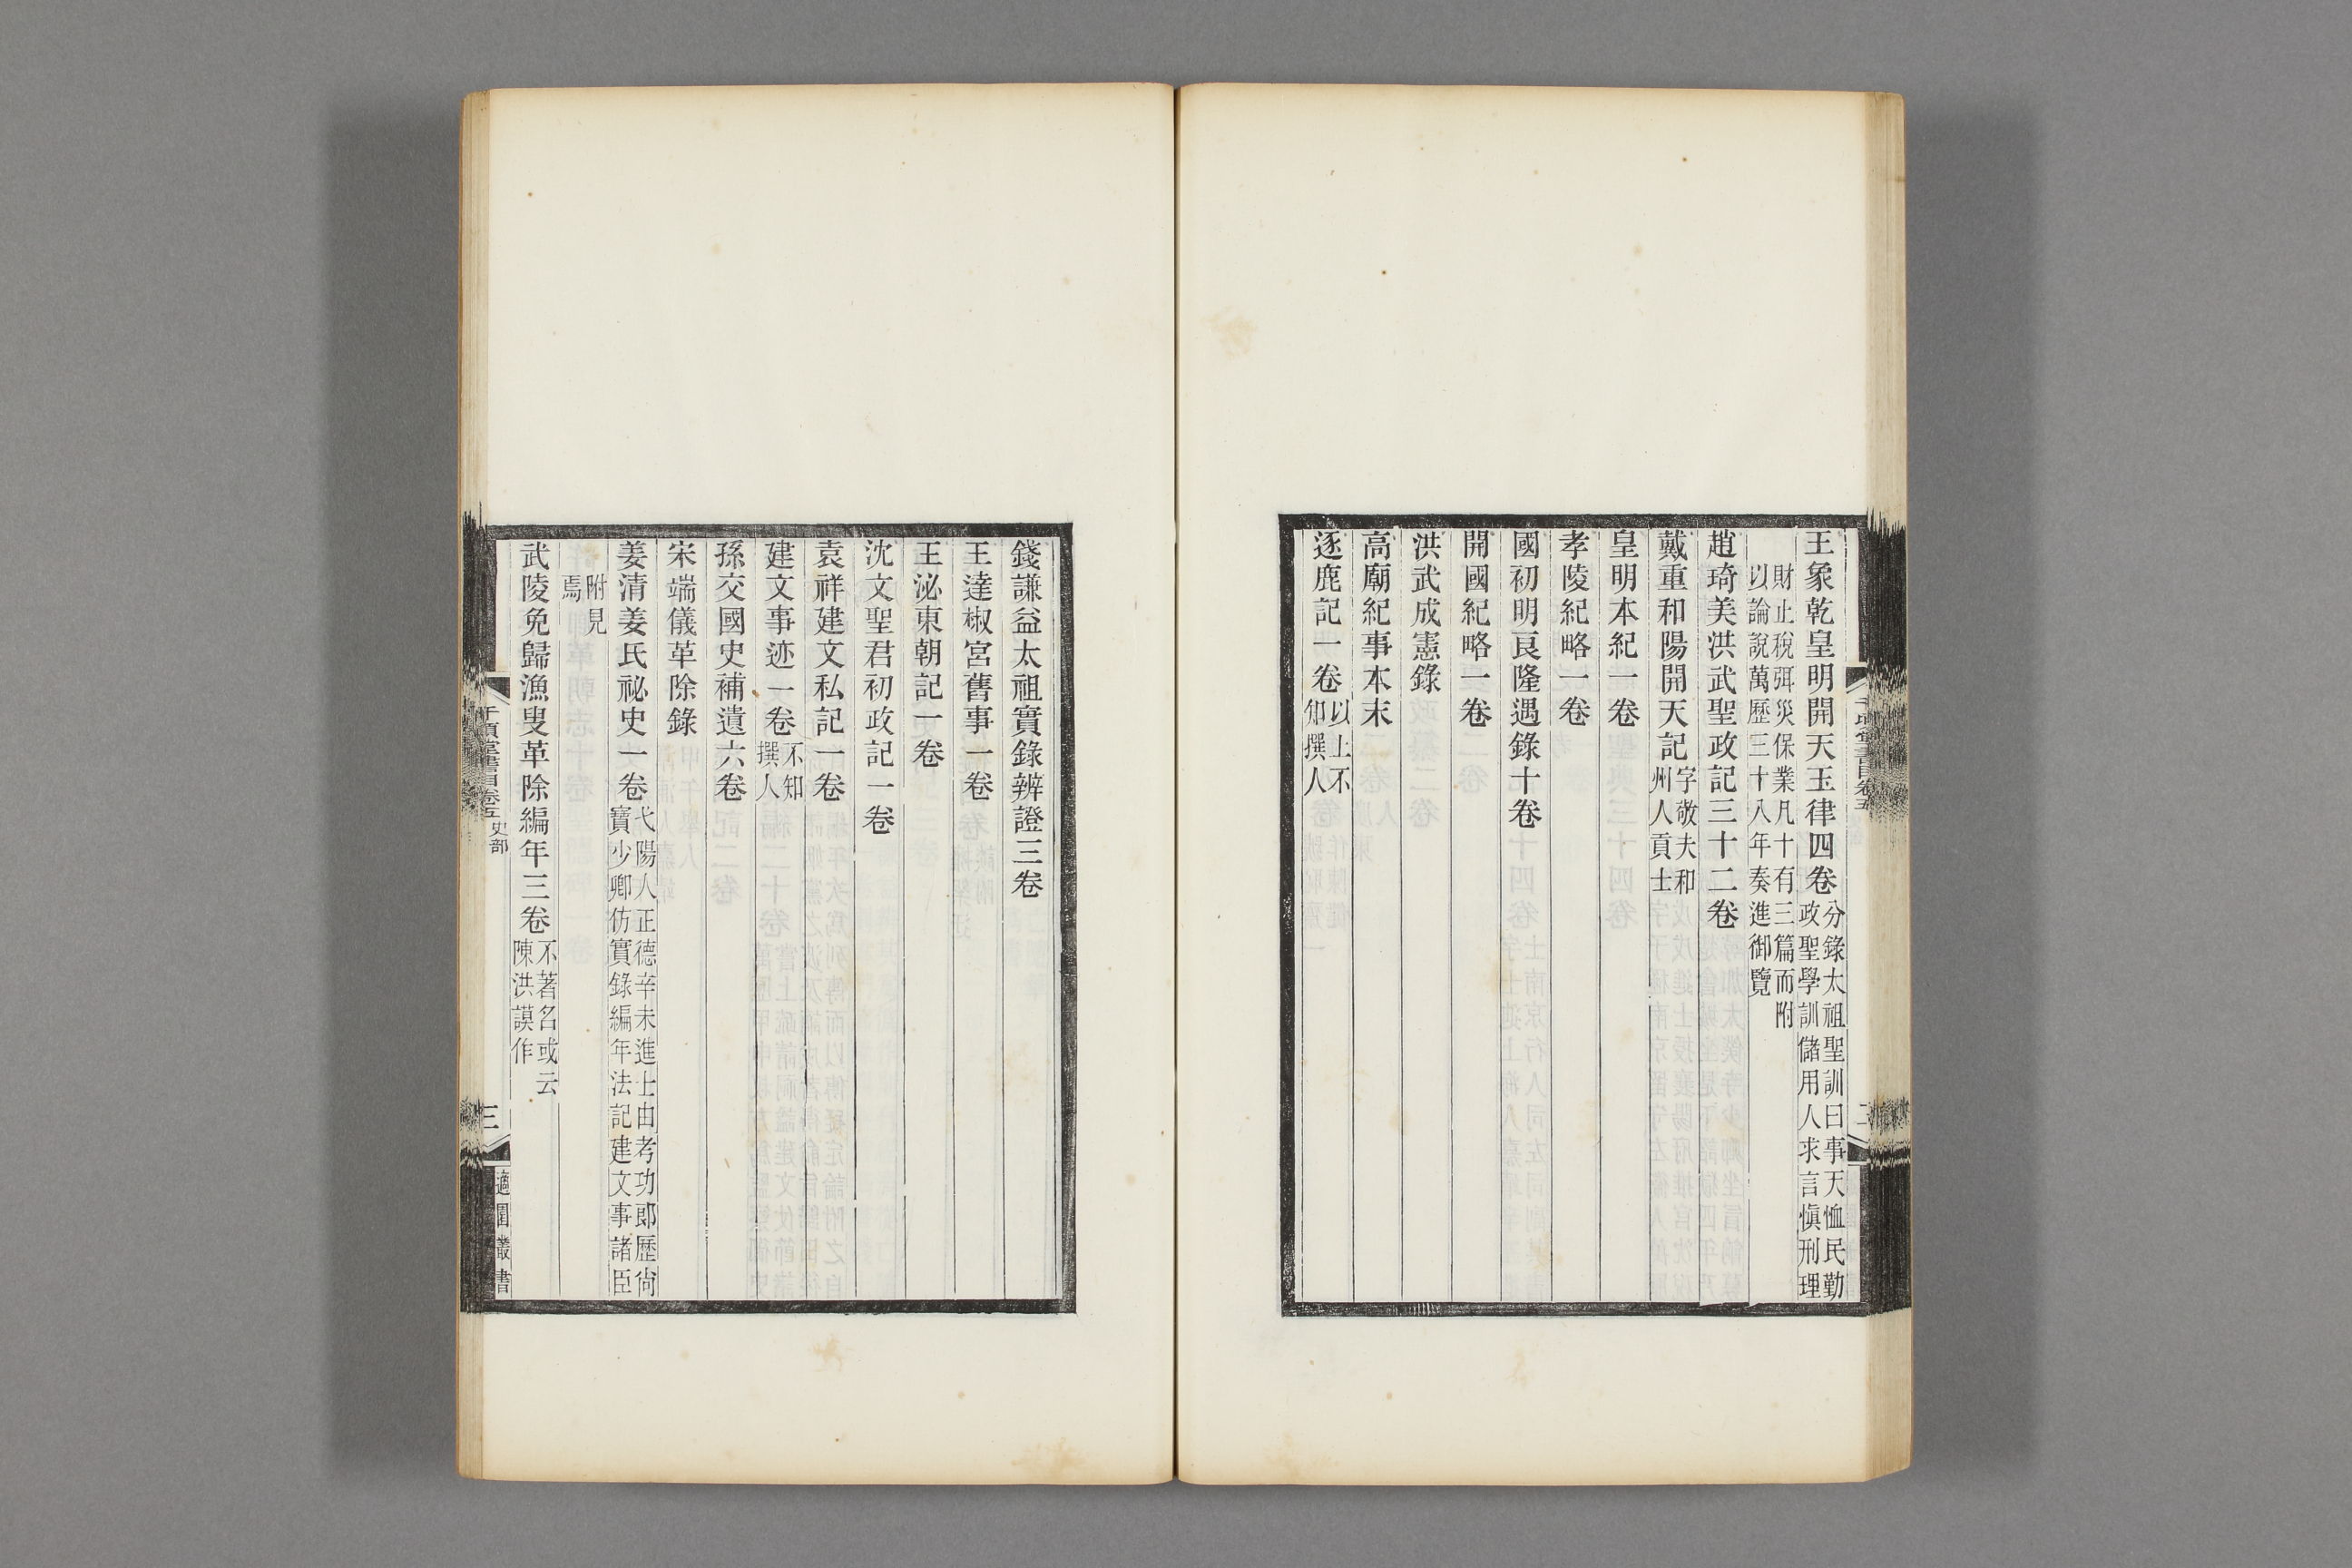 王象乾皇明開天玉律四卷分錄太祖聖訓曰事天恤民勤政聖學訓儲用人求言愼刑理
財止稅弭災保業凡十有三篇而附以論說萬歷三十八年奏進御覽
趙琦美洪武聖政記三十二卷
戴重和陽開天記字敬夫和州人貢士
皇明本紀一卷
孝陵紀略一卷
國初明良隆遇錄十卷
開國紀略一卷
洪武成憲錄
高廟紀事本末
逐鹿記一卷以上不知撰人
錢謙益太祖實錄辨證三卷
王達椒宮舊事一卷
王泌東朝記一卷
沈文聖君初政記一卷
袁祥建文私記一卷
建文事迹一卷不知撰人
孫交國史補遺六卷
宋端儀革除錄
姜清姜氏祕史一卷弋陽人正德辛未進士由考功郎歷尙寶少卿仿實錄編年法記建文事諸臣
附見焉
武陵免歸漁叟革除編年三卷不著名或云陳洪謨作
千頃堂書目卷五 史部
三
適園叢書